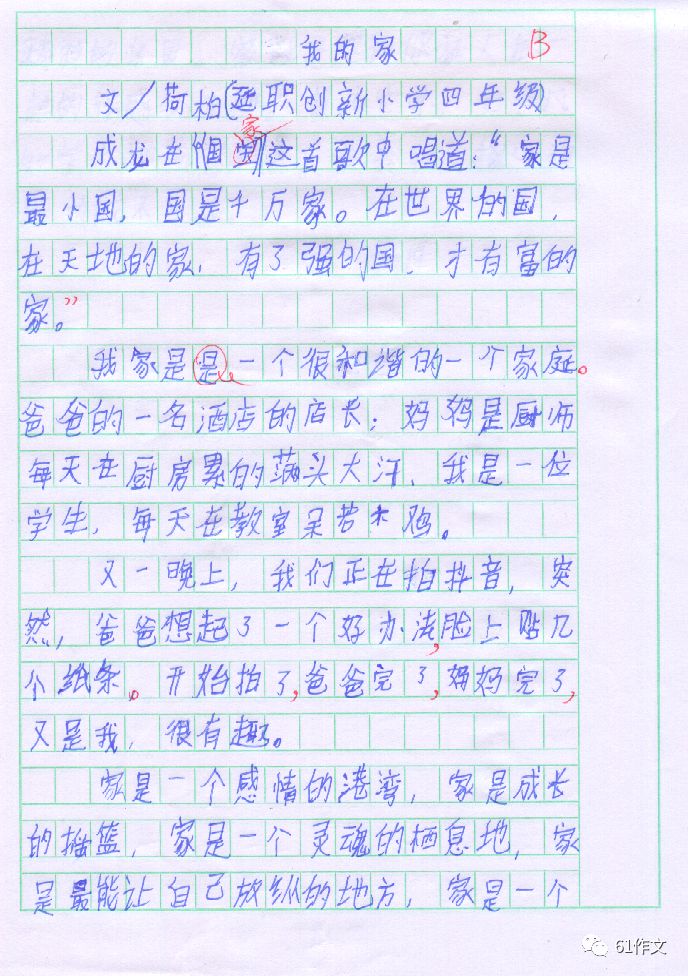 我的家 B
文/荷柏(延职创新小学四年级)
家
成龙在《国》这首歌中唱道:“家是
最小国,国是千万家。在世界的国,
在天地的家,有了强的国,才有富的
家。”
我家是是一个很和谐的一个家庭。
爸爸的一名酒店的店长;妈妈是厨师
每天在厨房累的满头大汗,我是一位
学生,每天在教室呆若木鸡。
又一晚上,我们正在拍抖音,突
然,爸爸想起了一个好办法,脸上贴几
个纸条。开始拍了,爸爸完了,妈妈完了,
又是我,很有趣。
家是一个感情的港湾,家是成长
的摇篮,家是一个灵魂的栖息地,家
是最能让自己放纵的地方,家是一个
61作文